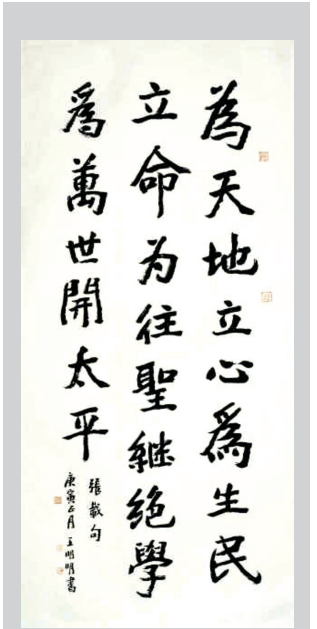 為天地立心爲生民
立命为往聖継绝學
爲萬世開太平
張載句
庚寅正月王明明書